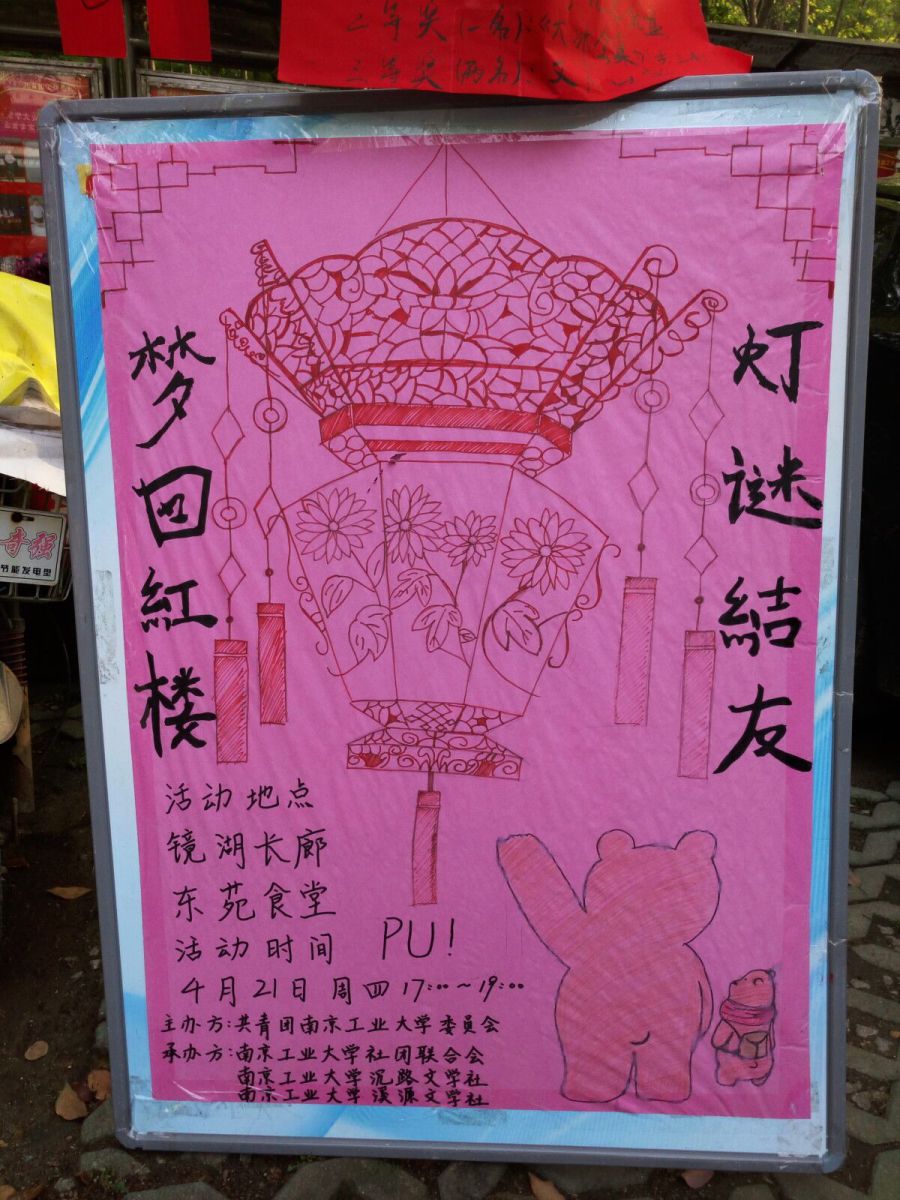 二等奖(一名):
三等奖(两名):
梦回紅楼
灯谜結友
活动地点
镜湖长廊
东苑食堂
活动时间 PU!
4月21日 周四 17:00~19:00
主办方:共青团南京工业大学委员会
承办方:南京工业大学社团联合会
南京工业大学泥路文学社
南京工业大学溪源文学社
奇强
节能发电型